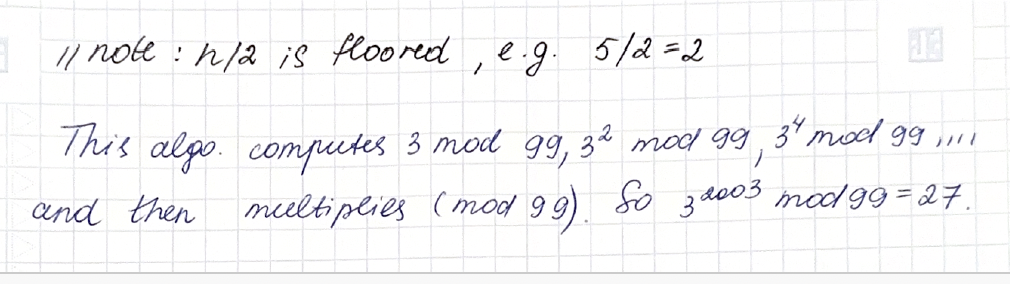 // note : n/2 is floored , e.g. 5/2 = 2
This algo. computes 3 mod 99, 3² mod 99, 3⁴ mod 99 ,...,
and then multiplies (mod 99). So 3²⁰⁰³ mod 99 = 27.